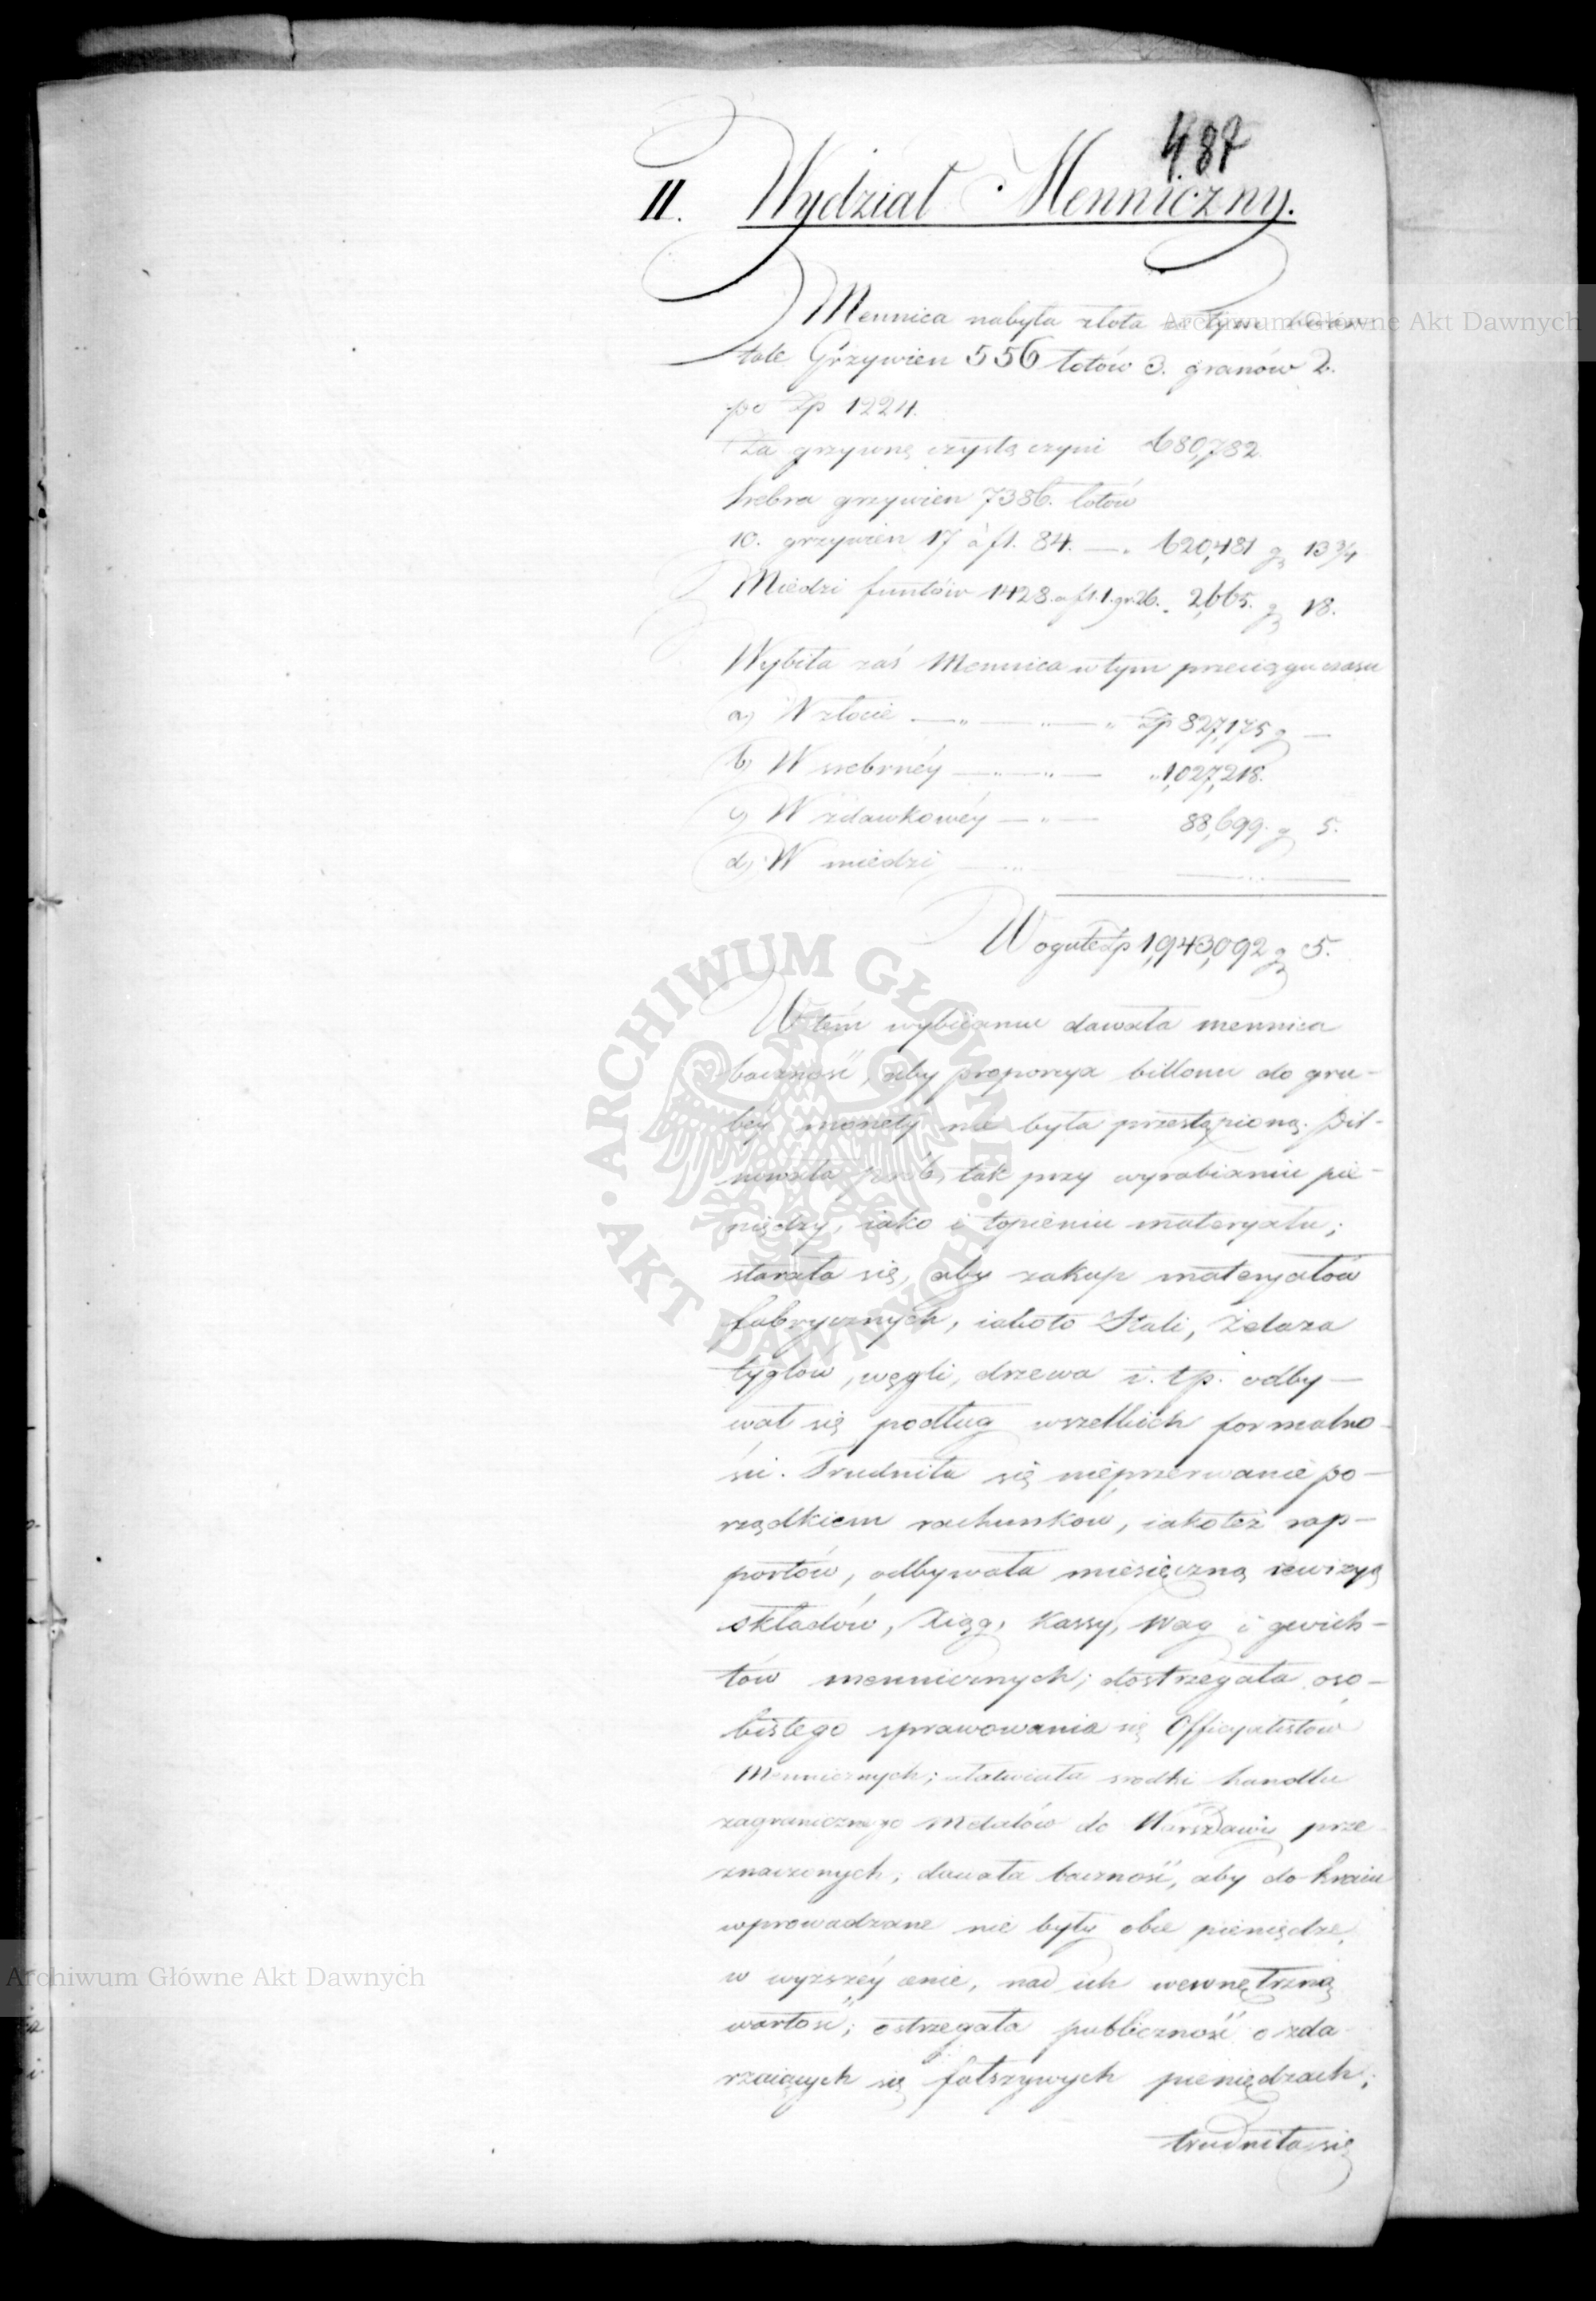 487
II. Wydział Menniczny.
Mennica nabyła złota w tym kwar-
tale Grzywien 556 łotów 3. granów 2.
po Zp 1224.
Za grzywnę czystą czyni 680,782
Srebra grzywien 7386. łotów
10. grzywien 17 à fl. 84. — „ 620,481 g 13 3/4
Miedzi funtów 1428. a fl. 1. gr 26. „ 2,665. g 18.
Wybiła zaś Mennica w tym przeciągu czasu
a) W złocie — „ — „ — „ Zp 827,175 g —
b) W srebrnéy — „ — „ — „ 1,027,218.
c) W zdawkowéy — „ — 88,699. g 5.
d) W miedzi — „ — „
W ogule Zp 1,943,092 g 5.
W tém wybijaniu dawała mennica
baczność, aby proporcya billonu do gru-
béy monety nie była przestąpioną. Pil-
nowała prób, tak przy wyrabianiu pie-
niędzy, iako i topieniu materyału;
starała się, aby zakup materyałów
fabrycznych, iakoto Stali, Żelaza
tyglów, węgli, drzewa i. t.p. odby-
wał się podług wszelkich formalno-
ści. Trudniła się nieprzerwanie po-
rządkiem rachunków, iakoteż rap-
portów, odbywała miesięczną rewizyą
składów, Xiąg, Kassy, Wag i gwich-
tów mennicznych; dostrzegała oso-
bistego sprawowania się Officyalistów
Mennicznych; ułatwiała srodki handlu
zagranicznego Metalów do Warszawy prze-
znaczonych; dawała baczność, aby do Kraiu
wprowadzane nie były obce pieniądze,
w wyzszéy cenie, nad ich wewnętrzną
wartość; ostrzegała publiczność o zda-
rzaiących się fałszywych pieniędzach;
trudniła się
Archiwum Główne Akt Dawnych
Archiwum Główne Akt Dawnych
ARCHIWUM GŁÓWNE · AKT DAWNYCH ·